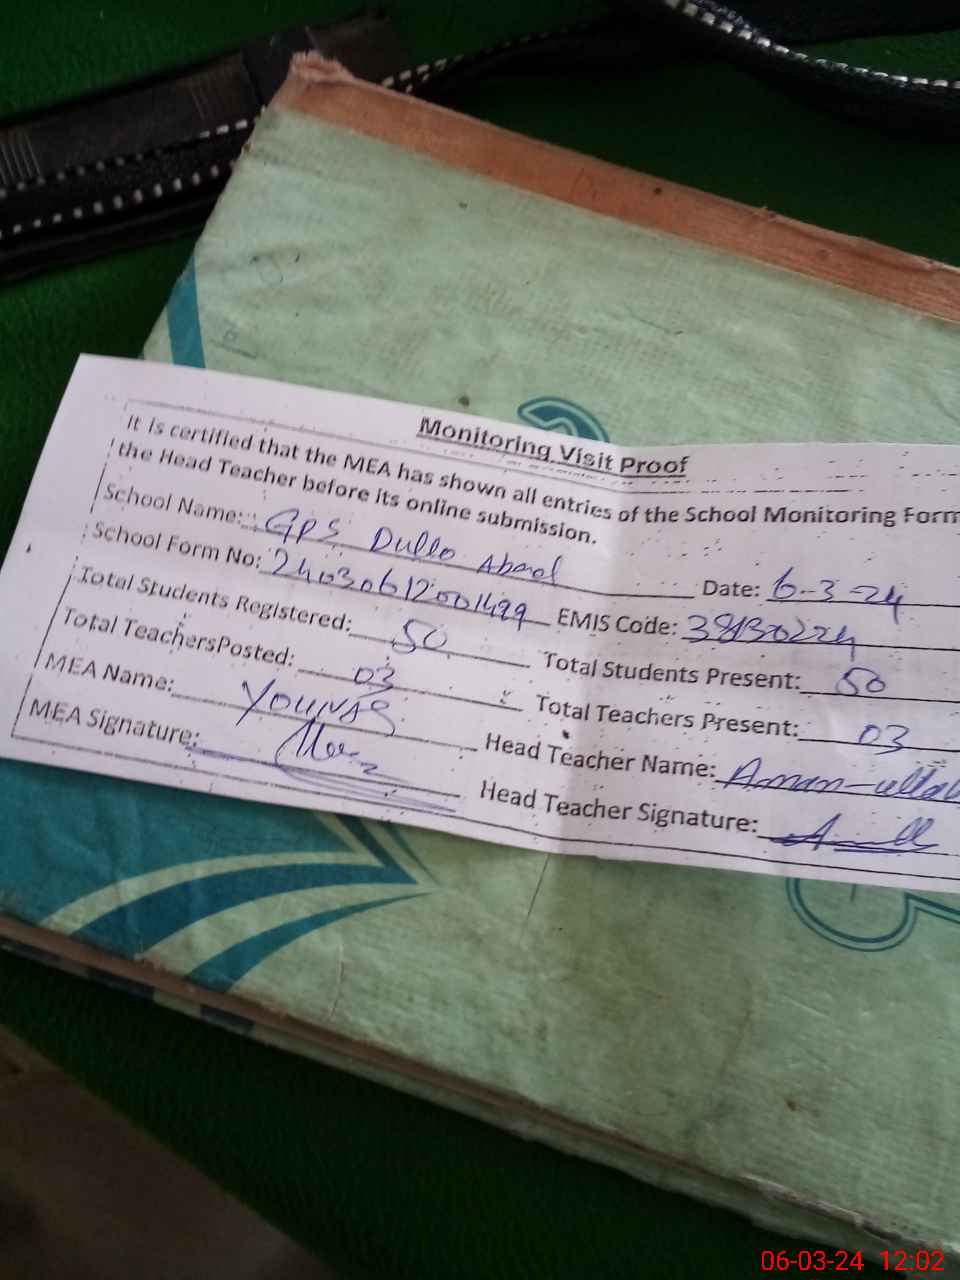 Monitoring Visit Proof
It is certified that the MEA has shown all entries of the School Monitoring Form
the Head Teacher before its online submission.
School Name: GPS Dullo Abad Date: 6-3-24
School Form No: 240306120001499 EMIS Code: 38130224
Total Students Registered: 50 Total Students Present: 50
Total TeachersPosted: 03 Total Teachers Present: 03
MEA Name: YOUNAS Head Teacher Name: Aman-ullah
MEA Signature: Head Teacher Signature:
06-03-24 12:02